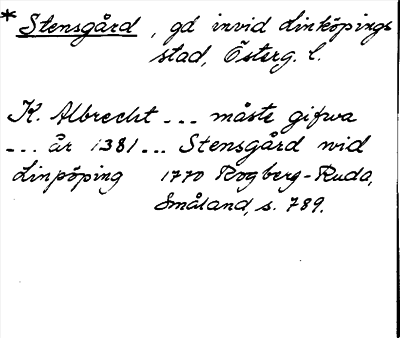 * Stensgård, gd invid Linköpings
stad, Österg. l.
K. Albrecht ... måste gifwa
... år 1381 ... Stensgård wid
Linpöping 1770 Rogberg-Ruda,
Småland, s. 789.